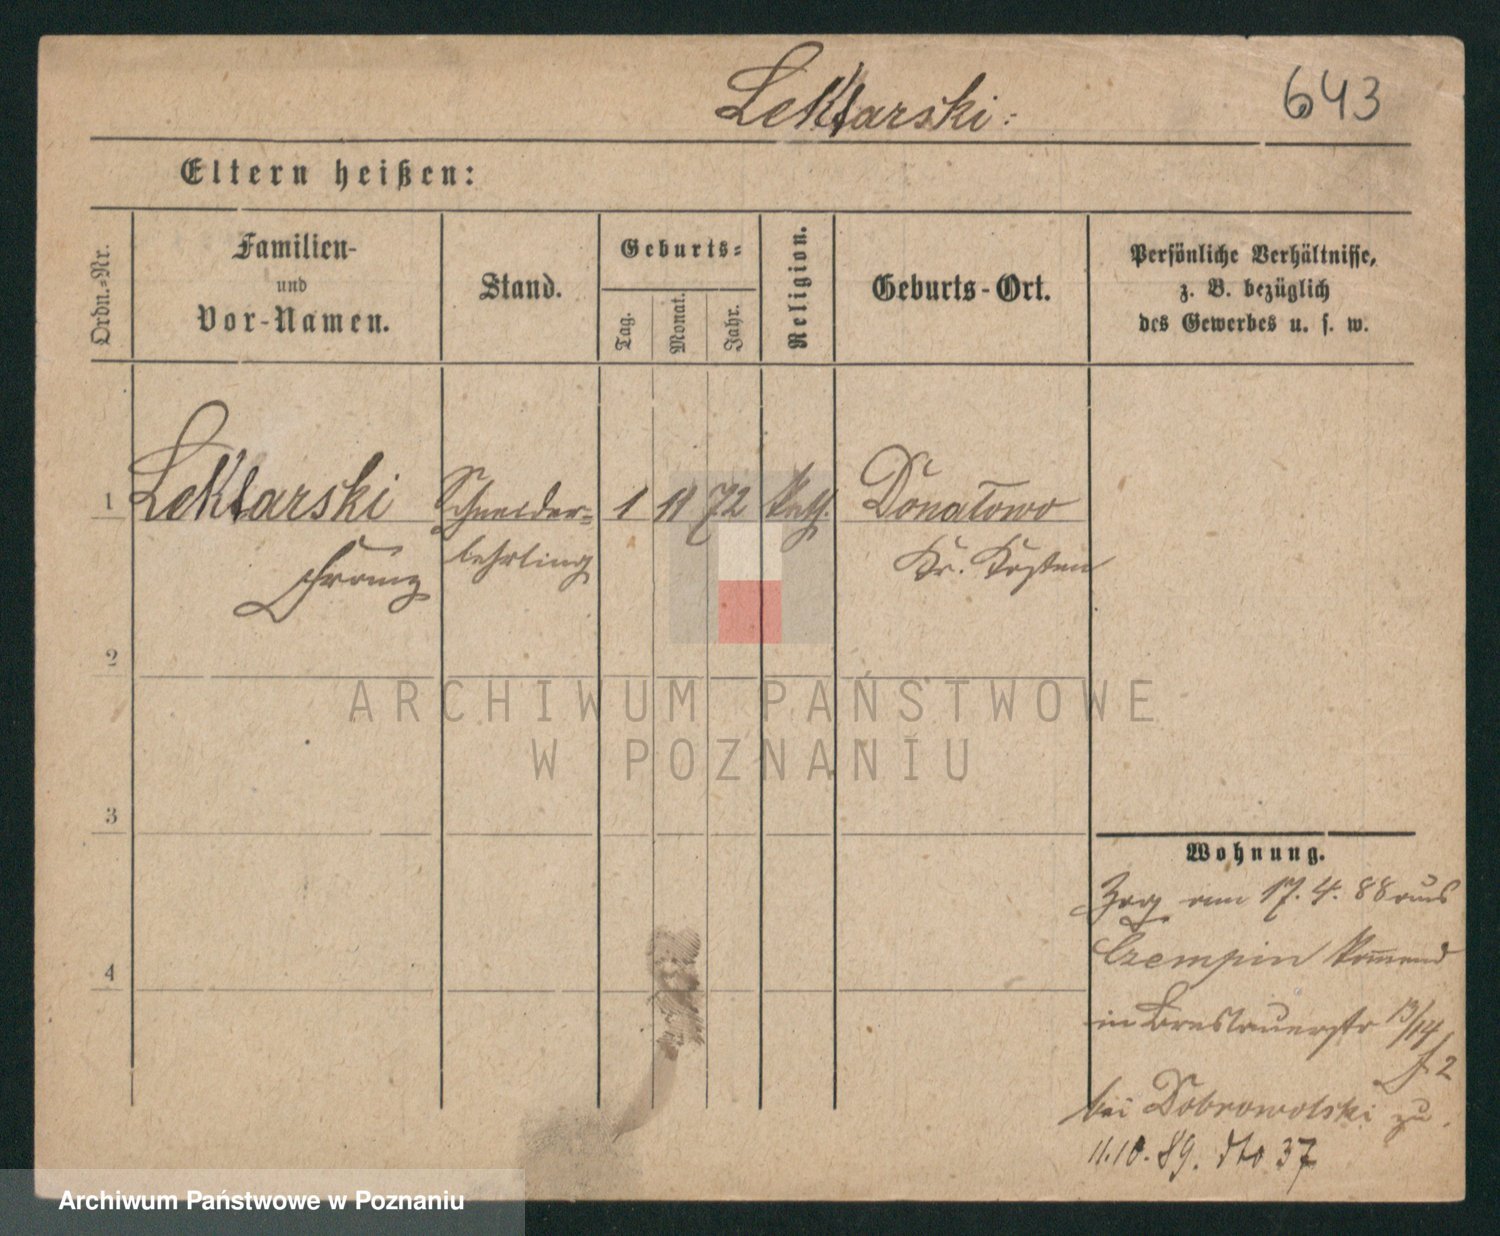 Lektarski:
643
Eltern heißen:
Ordn.-Nr.
Familien-
und
Vor-Namen.
Stand.
Geburts-
Tag.
Monat.
Jahr.
Religion.
Geburts-Ort.
Persönliche Verhältnisse,
z. B. bezüglich
des Gewerbes u. s. w.
1
Lektarski
Franz
Schneider=
lehrling
1 11 72
Kath.
Donatowo
Kr. Kosten
2
3
4
Wohnung.
Zog am 17. 4. 88 aus
Czempin kommend
in Breslauerstr 13/14
2
bei Dobrowolski zu.
11.10.89. dto 37
ARCHIWUM PAŃSTWOWE
W POZNANIU
Archiwum Państwowe w Poznaniu